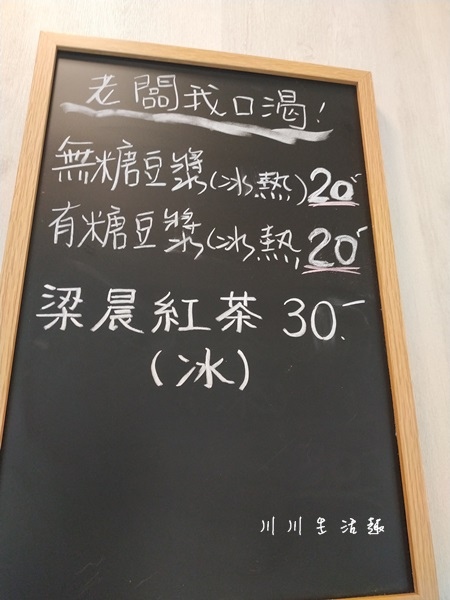 老闆我口渴!
無糖豆漿(冰.熱)20-
有糖豆漿(冰.熱,20-
梁晨紅茶 30.-
(冰)
川川生活趣